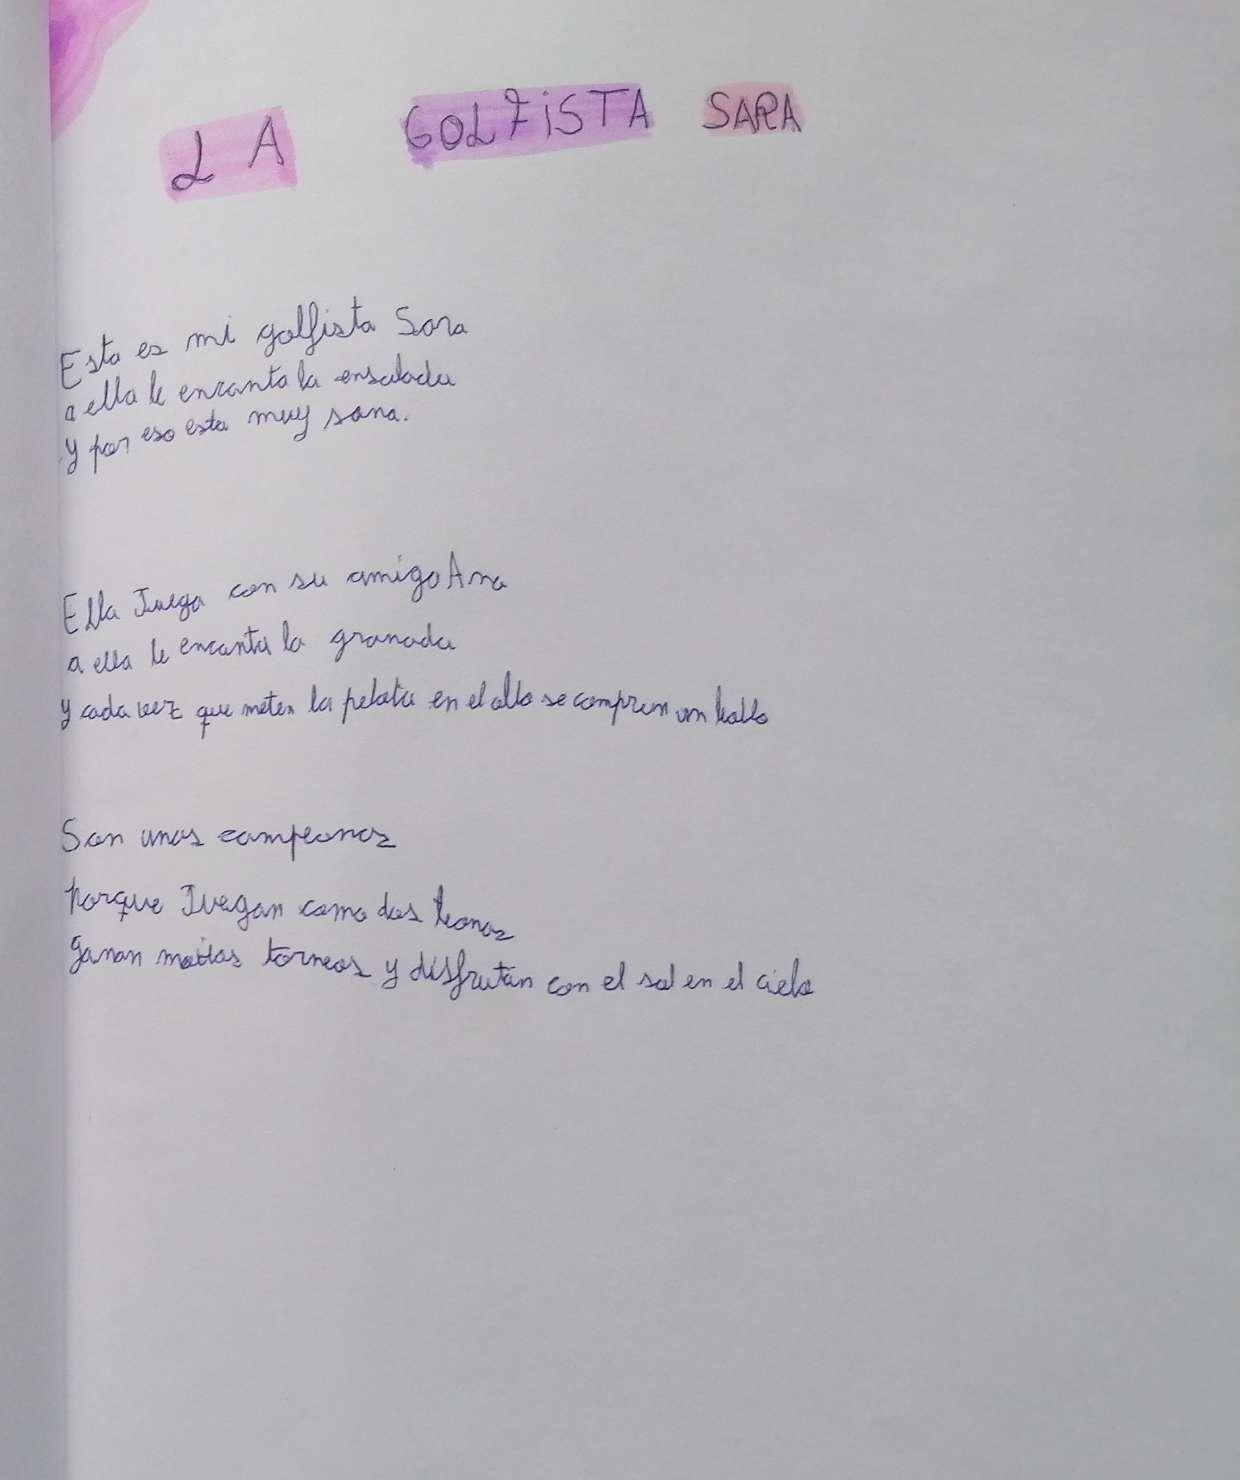 LA GOLFISTA SARA
Esta es mi golfista Sara
a ella le encanta la ensalada
y por eso esta muy sana.
Ella Juega con su amiga Ana
a ella le encanta la granada
y cada vez que meten la pelota en el ollo se compran un bollo
Son unos campeones
porque Juegan como dos leones
ganan muchos torneos y disfrutan con el sol en el cielo